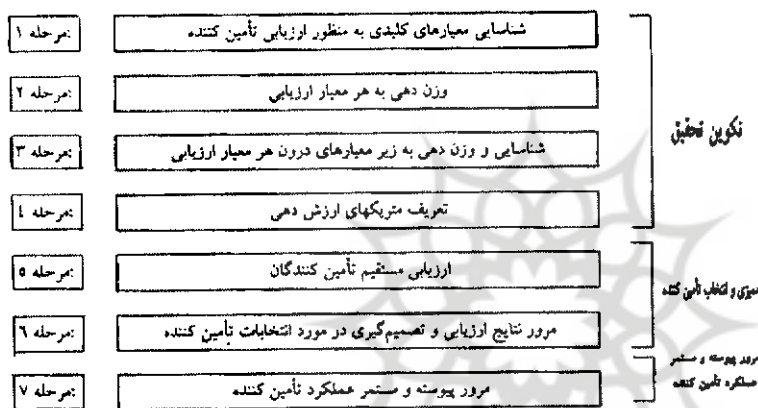 مرحله ۱:
شناسایی معیارهای کلیدی به منظور ارزیابی تأمین کننده
مرحله ۲:
وزن دهی به هر معیار ارزیابی
مرحله ۳:
شناسایی و وزن دهی به زیر معیارهای درون هر معیار ارزیابی
مرحله ٤:
تعریف متریکهای ارزش دهی
تکوین تحقیق
مرحله ٥:
ارزیابی مستقیم تأمین کنندگان
مرحله ٦:
مرور نتایج ارزیابی و تصمیم‌گیری در مورد انتخابات تأمین کننده
ممیزی و انتخاب تأمین کننده
مرحله ۷:
مرور پیوسته و مستمر عملکرد تأمین کننده
مرور پیوسته و مستمر
عملکرد تأمین کننده